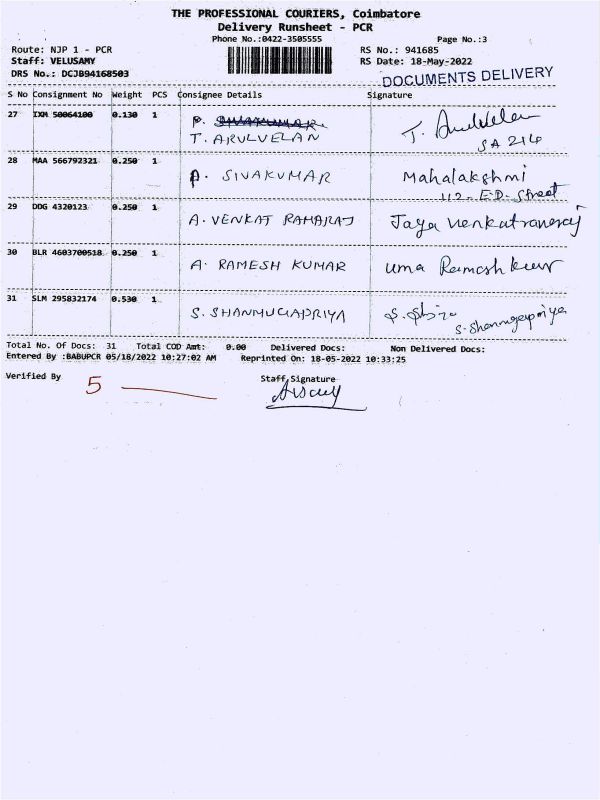 THE PROFESSIONAL COURIERS, Coimbatore
Delivery Runsheet - PCR
Phone No.:0422-3505555 Page No.:3
Route: NJP 1 - PCR RS No.: 941685
Staff: VELUSAMY RS Date: 18-May-2022
DRS No.: DCJB94168503
DOCUMENTS DELIVERY
S No Consignment No Weight PCS Consignee Details Signature
27 IXM 50064100 0.130 1 P. SIVAKUMAR
T. ARULVELAN T. Arulvelan
SA 214
28 MAA 566792321 0.250 1 A. SIVAKUMAR Mahalakshmi
112- E.D- Street
29 DDG 4320123 0.250 1 A. VENKAT RAMARAJ Jaya
30 BLR 4603700518 0.250 1 A. RAMESH KUMAR uma
31 SLM 295832174 0.530 1 S. SHANMUGAPRIYA
S. Shanmugapriya
Total No. Of Docs: 31 Total COD Amt: 0.00 Delivered Docs: Non Delivered Docs:
Entered By :BABUPCR 05/18/2022 10:27:02 AM Reprinted On: 18-05-2022 10:33:25
Verified By 5 Staff Signature